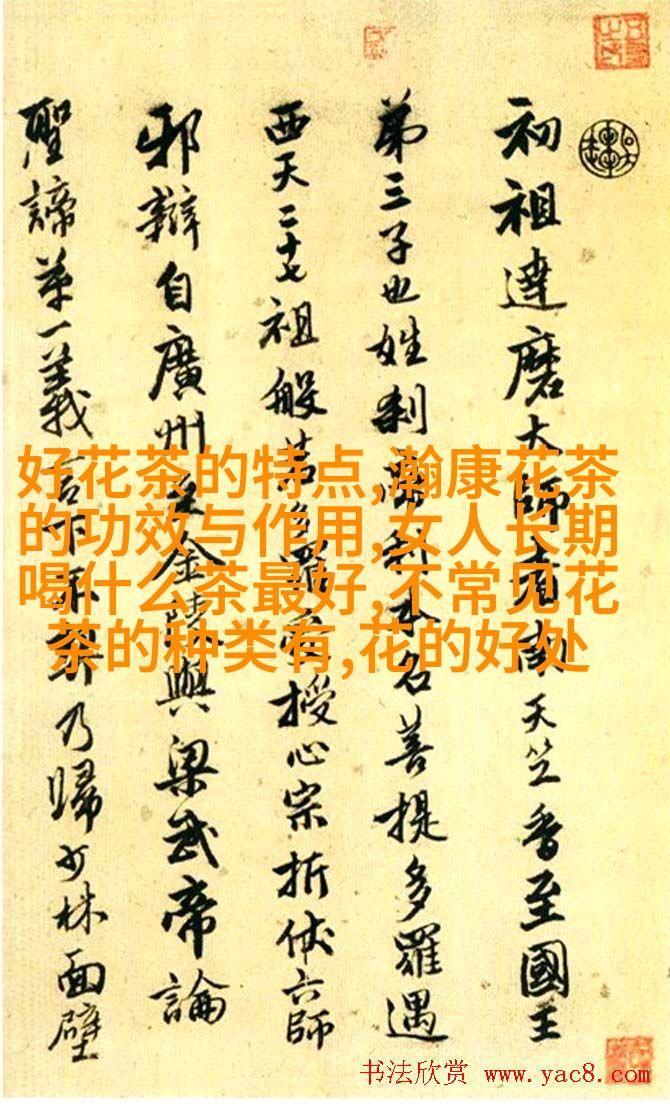 初祖達磨大師者南天竺香至國王
弟三子也姓刹帝利本名菩提多羅遇
西天二十七祖般若多羅密授心宗折伏六師
邪辯自廣州来金陵與梁武帝論
聖諦苐一義言下不契乃歸少林面壁
好花茶的特点,瀚康花茶
的功效与作用,女人长期
喝什么茶最好,不常见花
茶的种类有,花的好处
书法欣赏 www.yac8.com